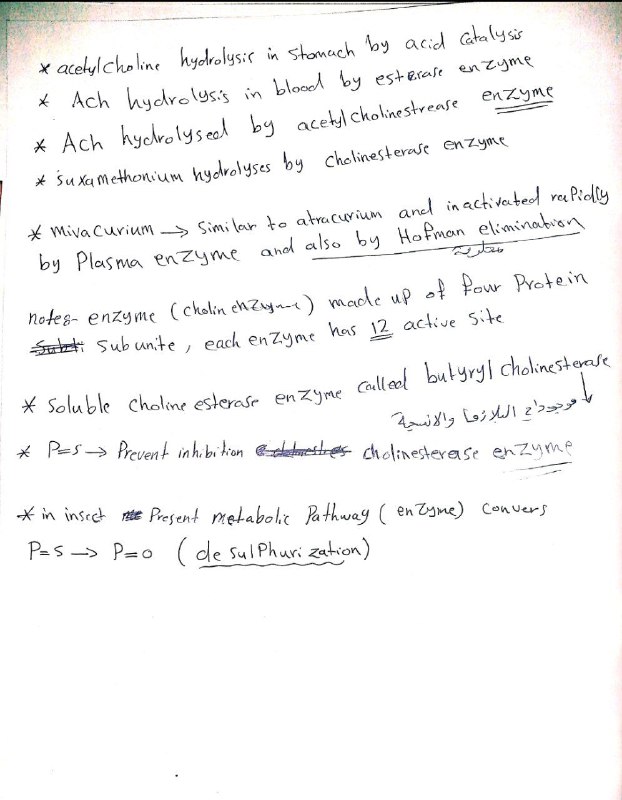 * acetylcholine hydrolysis in stomach by acid catalysis
* Ach hydrolysis in blood by esterase enzyme
* Ach hydrolysed by acetylcholinestrease enzyme
* suxamethonium hydrolyses by cholinesterase enzyme
* mivacurium → similar to atracurium and inactivated rapidly
by Plasma enzyme and also by Hofman elimination
notes- enzyme (cholin enzyme) made up of four Protein
Subunite, each enzyme has 12 active site
* soluble choline esterase enzyme called butyryl cholinesterase
موجود في البلازما والانسجة
* P=S → Prevent inhibition cholinesterase enzyme
* in insect Present metabolic Pathway (enzyme) convers
P=S → P=O (desulphurization)